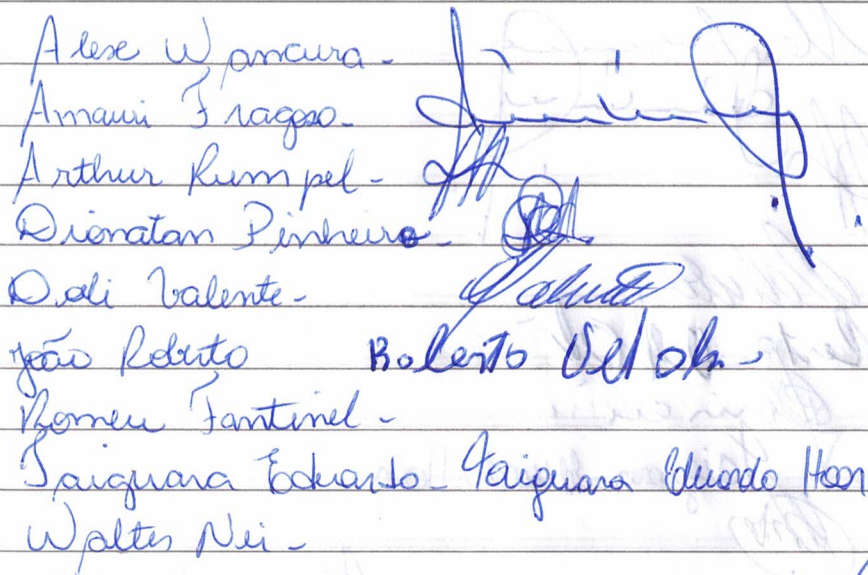 Alexe Wancura -
Amauri Fragoso -
Arthur Rumpel -
Dionatan Pinheiro -
Doli Valente - Valente
João Roberto Roberto
Romeu Fantinel -
Taiguara Eduardo - Taiguara Eduardo
Walter Nei -